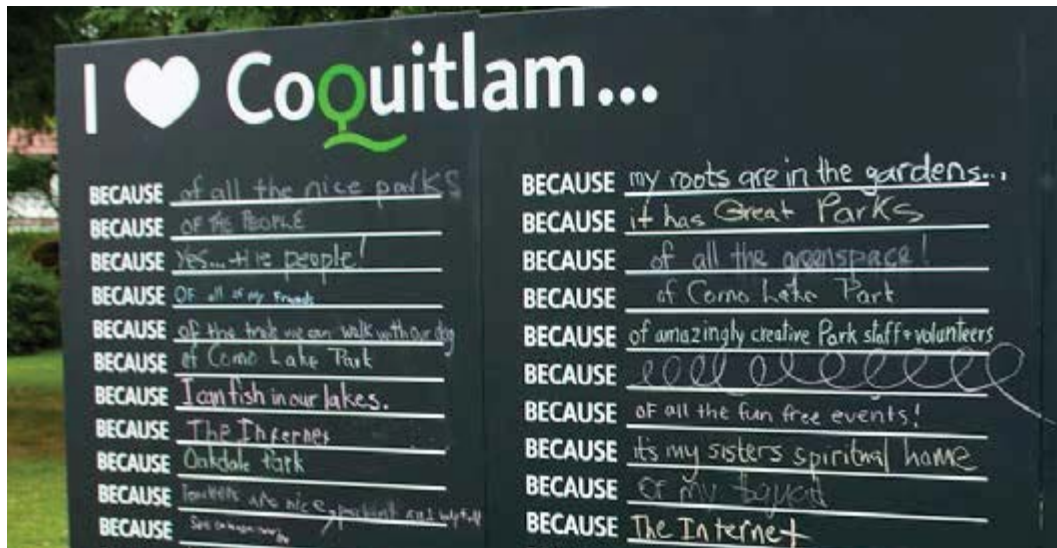 I ♥ CoQuitlam...
BECAUSE of all the nice parks
BECAUSE OF THE PEOPLE
BECAUSE Yes... the people!
BECAUSE OF all of my Friends
BECAUSE of the trails we can walk with our dog
BECAUSE of Como Lake Park
BECAUSE I can fish in our lakes.
BECAUSE The Internet
BECAUSE Oakdale Park
BECAUSE are nice, and
BECAUSE
BECAUSE my roots are in the gardens...
BECAUSE it has Great Parks
BECAUSE of all the greenspace!
BECAUSE of Como Lake Park
BECAUSE of amazingly creative Park staff + volunteers
BECAUSE
BECAUSE OF all the fun free events!
BECAUSE it's my sisters spiritual home
BECAUSE of my
BECAUSE The Internet